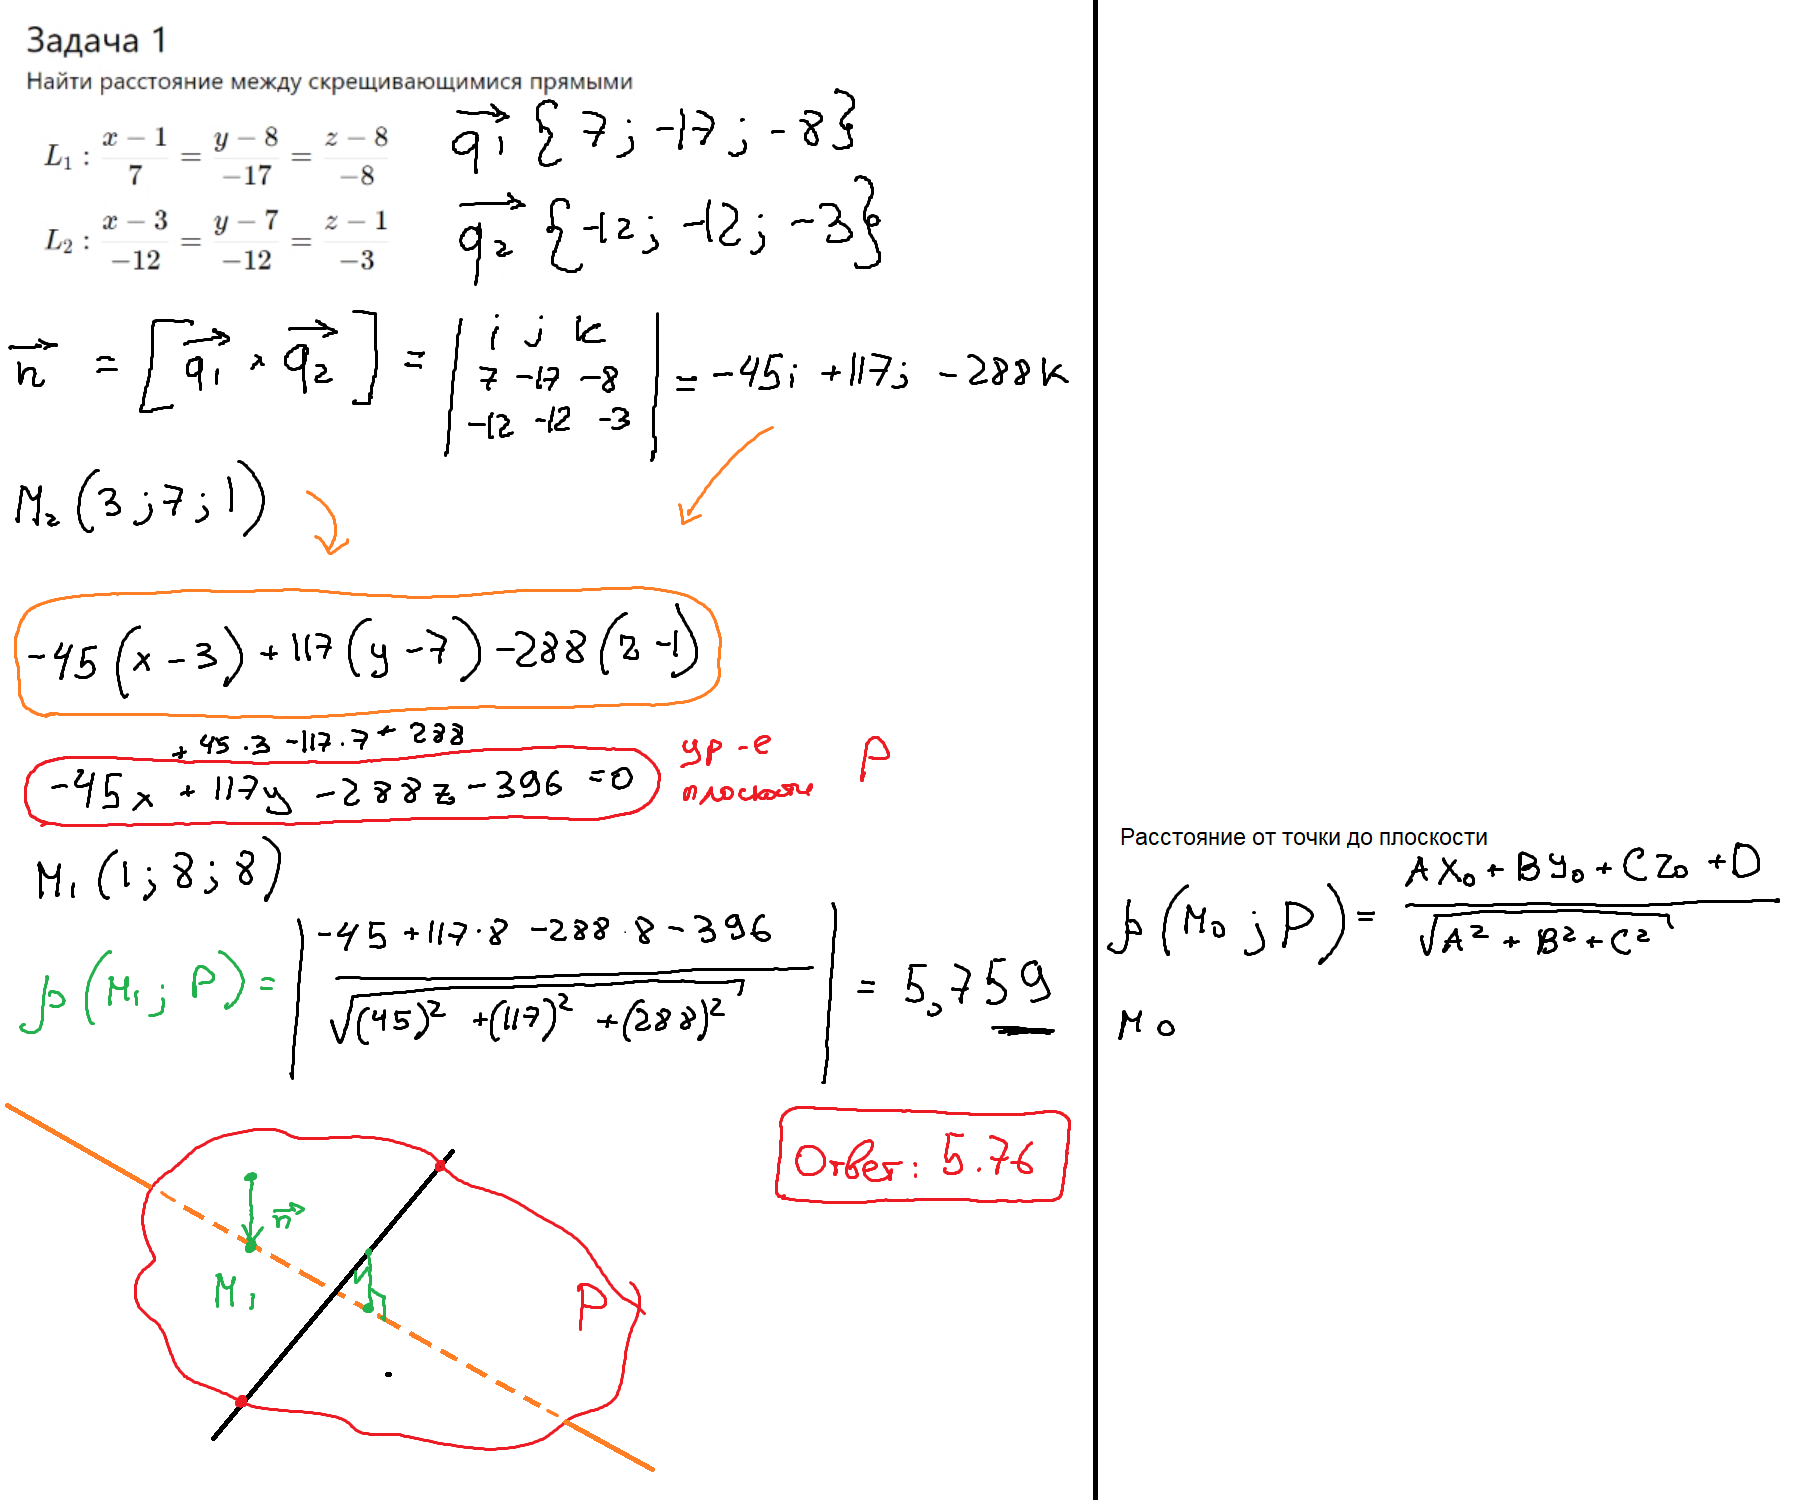 Задача 1
Найти расстояние между скрещивающимися прямыми
L₁ : (x − 1)/7 = (y − 8)/−17 = (z − 8)/−8
q₁ {7; -17; -8}
L₂ : (x − 3)/−12 = (y − 7)/−12 = (z − 1)/−3
q₂ {-12; -12; -3}
n = [q₁ × q₂] = | i j k
7 -17 -8
-12 -12 -3 | = -45i + 117j - 288k
M₂ (3; 7; 1)
-45(x - 3) + 117(y - 7) - 288(z - 1)
+ 45 · 3 - 117 · 7 + 288
-45x + 117y - 288z - 396 = 0
ур-е плоскости P
M₁ (1; 8; 8)
ρ(M₁; P) = | (-45 + 117 · 8 - 288 · 8 - 396) / √((45)² + (117)² + (288)²) | = 5,759
Ответ: 5.76
n
M₁
P
Расстояние от точки до плоскости
ρ(M₀; P) = (AX₀ + BY₀ + CZ₀ + D) / √(A² + B² + C²)
M₀